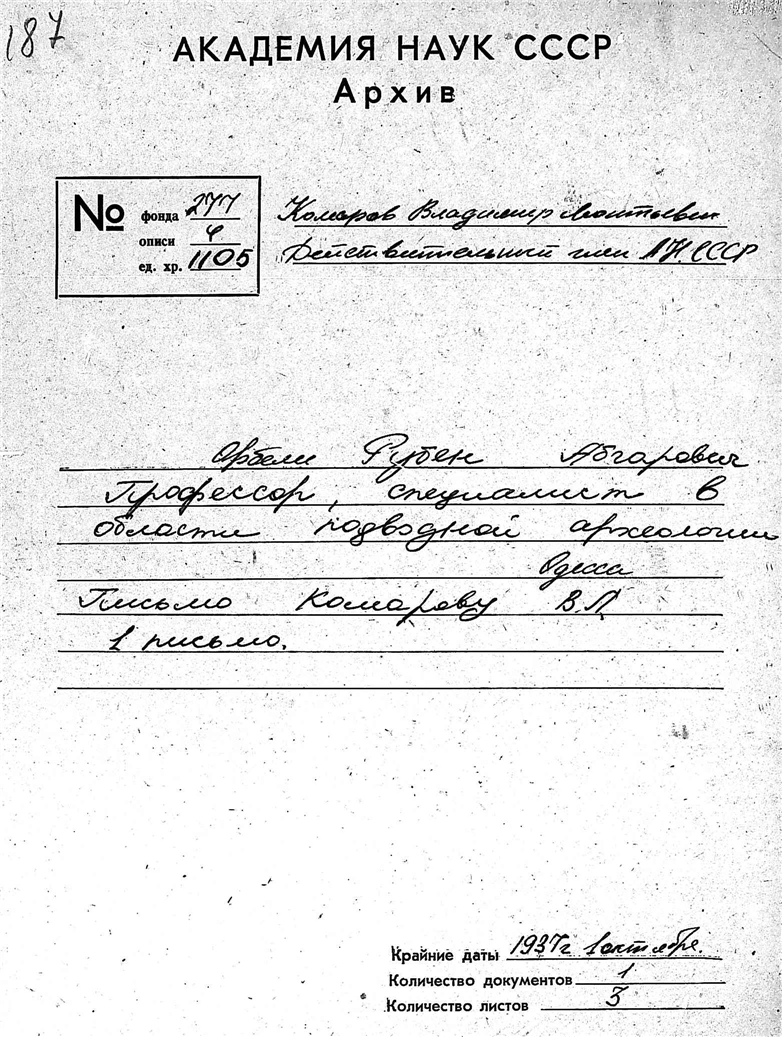 187
АКАДЕМИЯ НАУК СССР
Архив
№ фонда 277
описи 4
ед. хр. 1105
Комаров Владимир Леонтьевич
Действительный член АН СССР
Орбели Рубен Абгарович
Профессор, специалист в
области подводной археологии
Одесса
Письмо Комарову В.Л
1 письмо.
Крайние даты 1937г 1 октября.
Количество документов 1
Количество листов 3